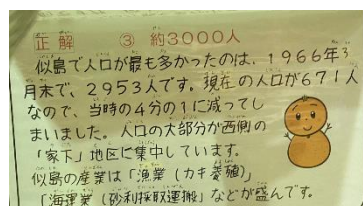 正解 ③ 約3000人
似島で人口が最も多かったのは、1966年3
月末で、2953人です。現在の人口が671人
なので、当時の4分の1に減ってし
まいました。人口の大部分が西側の
「家下」地区に集中しています。
似島の産業は「漁業（カキ養殖）
「海運業（砂利採取運搬）などが盛んです。